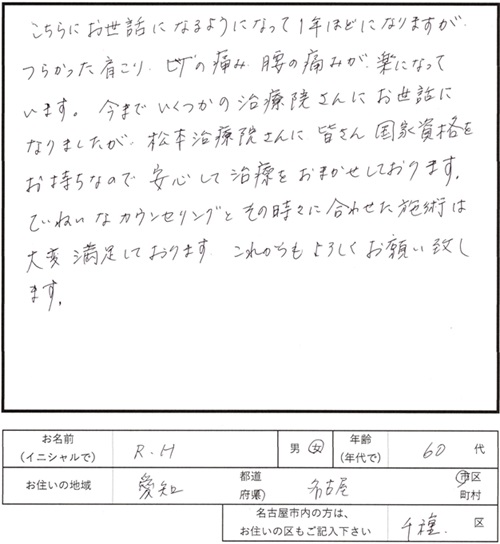 こちらにお世話になるようになって1年ほどになりますが
つらかった肩こり、ヒザの痛み、腰の痛みが、楽になって
います。今までいくつかの治療院さんにお世話に
なりましたが、松本治療院さんに皆さん国家資格を
お持ちなので安心して治療をおまかせしております。
ていねいなカウンセリングとその時々に合わせた施術は
大変満足しております。これからもよろしくお願い致し
ます。
お名前
(イニシャルで) R.H 男 女 年齢
(年代で) 60 代
お住いの地域 愛知 都道
府県 名古屋 市区
町村
名古屋市内の方は、
お住いの区もご記入下さい 千種 区